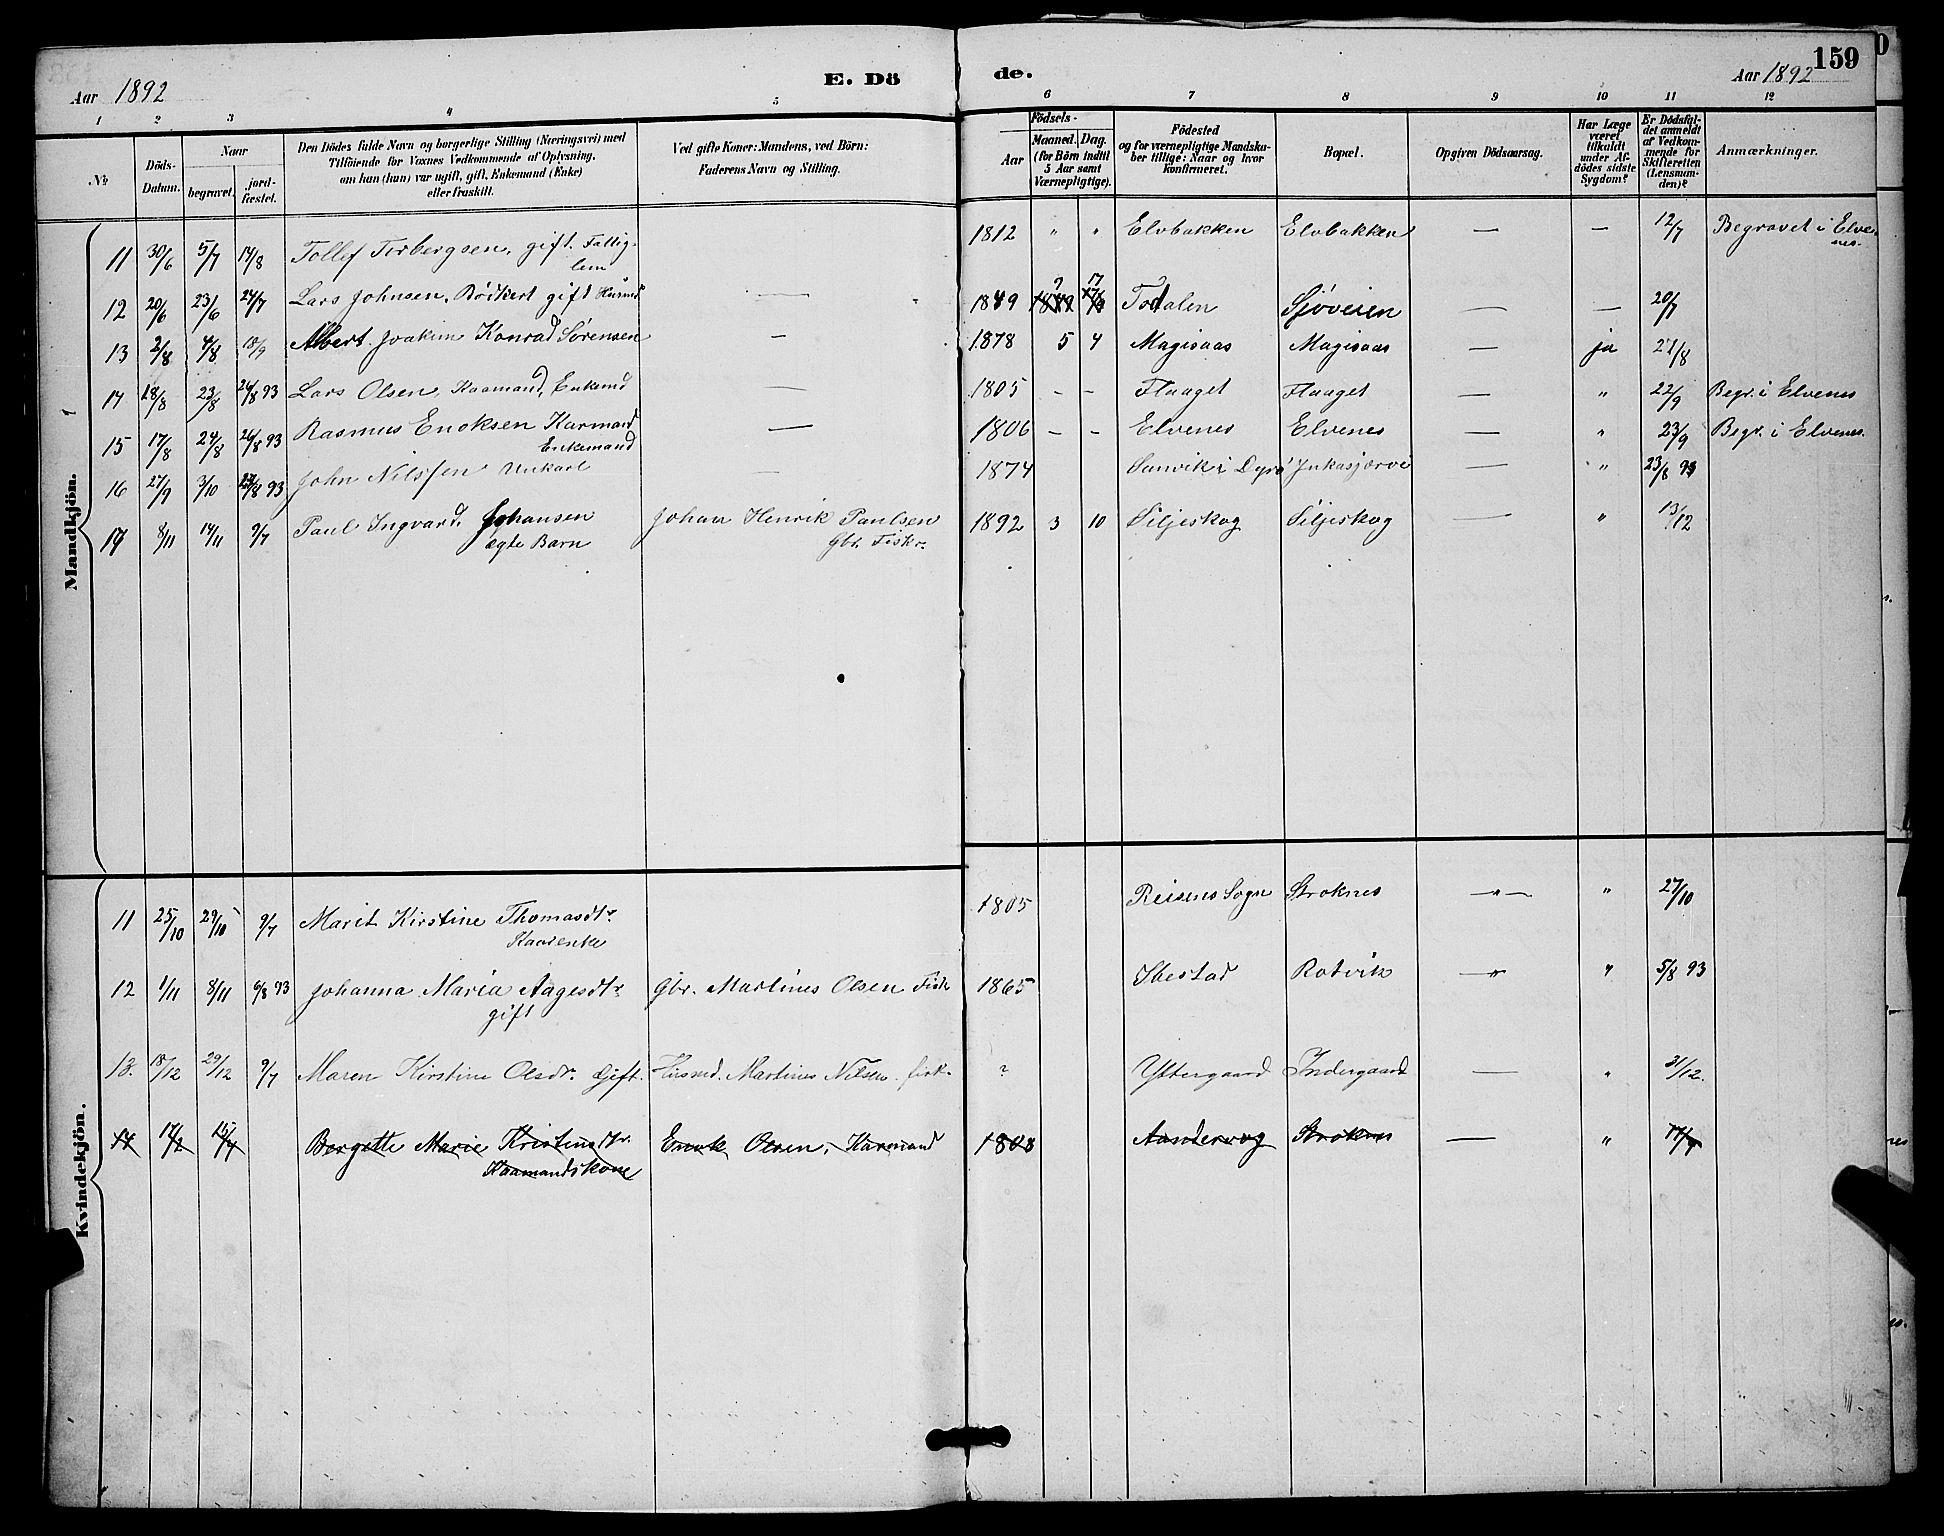 159
Aar 1892 E. Dö de. Aar 1892
1 2 3 4 5 6 7 8 9 10 11 12
№
Döds-Datum.
Naar
begravet.
jordfæstet.
Den Dödes fulde Navn og borgerlige Stilling (Næringsvei) med
Tilföiende for Voxnes Vedkommende af Oplysning,
om han (hun) var ugift, gift, Enkemand (Enke)
eller fraskilt.
Ved gifte Koner: Mandens, ved Börn:
Faderens Navn og Stilling.
Födsels-
Aar
Maaned. Dag.
(for Börn indtil
5 Aar samt
Værnepligtige).
Födested
og for værnepligtige Mandska-
ber tillige: Naar og hvor
konfirmeret.
Bopæl.
Opgiven Dödsaarsag.
Har Læge
været
tilkaldt
under Af-
dödes sidste
Sygdom?
Er Dödsfal-
det anmeldt
af Vedkom-
mende for
Skifteretten
(Lensman-
den)?
Anmærkninger.
Mandkjön.
11 30/6 5/7 14/8 Tollef Torbergsen, gift. Fattig-
lem
1812 " " Elvbakken Elvbakken — — 12/7 Begravet i Elve-
nes.
12 20/6 23/6 24/7 Lars Johnsen, Bödkert gift — 1849 Todalen Sjöveien — — 20/7
13 2/8 4/8 18/9 Albert Joakim Konrad Sørensen — 1878 5 4 Magisaas Magisaas — ja 27/8
14 18/8 23/8 26/8 93 Lars Olsen, Kaarmand, Enkemd — 1805 - - Flaaget Flaaget — " 22/9 Begr. i Elvenes
15 17/8 24/8 26/8 93 Rasmus Enoksen Karmand
Enkemand
— 1806 - - Elvenes Elvenes — " 23/9 Begr. i Elvenes.
16 27/9 3/10 27/8 93 John Nilssen Unkarl — 1874 i Dyrö Jukasjærvi — " 23/8 93
17 8/11 14/11 9/7 Paul Ingvard Johansen
ægte Barn
Johan Henrik Paulsen
Gbr. Fiskr.
1892 3 10 Siljeskog Siljeskog — " 13/12
Kvindekjön.
11 25/10 29/10 9/7 Marit Kirstine Thomasdtr.
Kaarenke
1805 Reisens Sogn Stroknes —"— " 27/10
12 1/11 8/11 6/8 93 Johanna Maria Aagesdtr.
gift
Gbr. Martinus Olsen Fisk 1865 Ibestad Rotvik —"— " 5/8 93
13. 18/12 29/12 9/7 Maren Kirstine Olsdtr. Gift. Husmd. Martinus Nilsen fisk. ? Yttergaard Indergaard — " 31/12.
14 17/2 15/4 Bergitte Marie Kristensdtr.
Kaarmandskone
Enok Olsen, Karmand 1808 Aandervag Stroknes — "